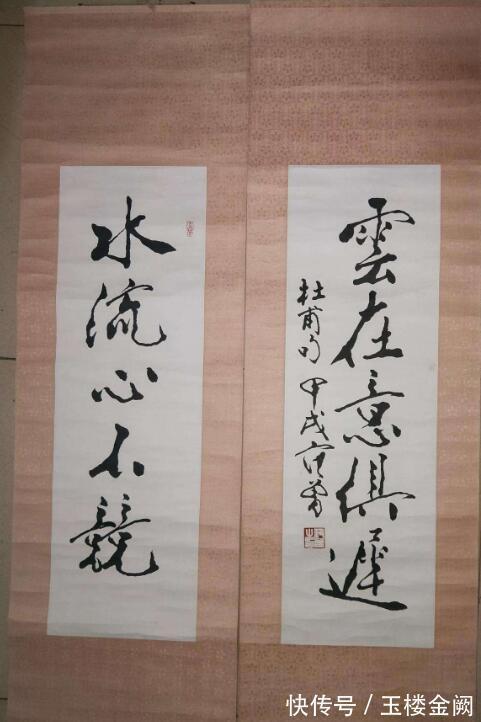 水流心不競
雲在意俱遲
杜甫句 甲戌 范曾
快传号 / 玉楼金阙